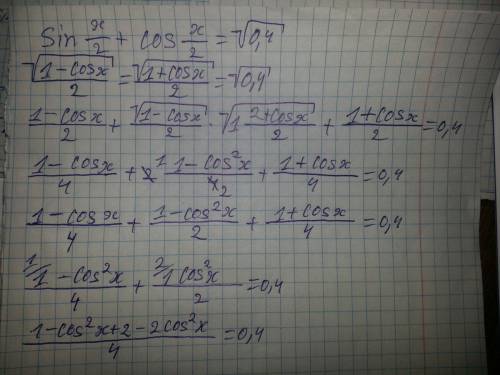 sin x/2 + cos x/2 = √0,4
√(1-cosx)/2 = √(1+cosx)/2 = √0,4
(1-cosx)/2 + √(1-cosx)/2 · √(1 2+cosx)/2 + (1+cosx)/2 = 0,4
(1-cosx)/4 + 2 1 (1-cos²x)/4 2 + (1+cosx)/4 = 0,4
(1-cosx)/4 + (1-cos²x)/2 + (1+cosx)/4 = 0,4
1/ (1-cos²x)/4 + 2/ (1 cos²x)/2 = 0,4
(1-cos²x+2-2cos²x)/4 = 0,4